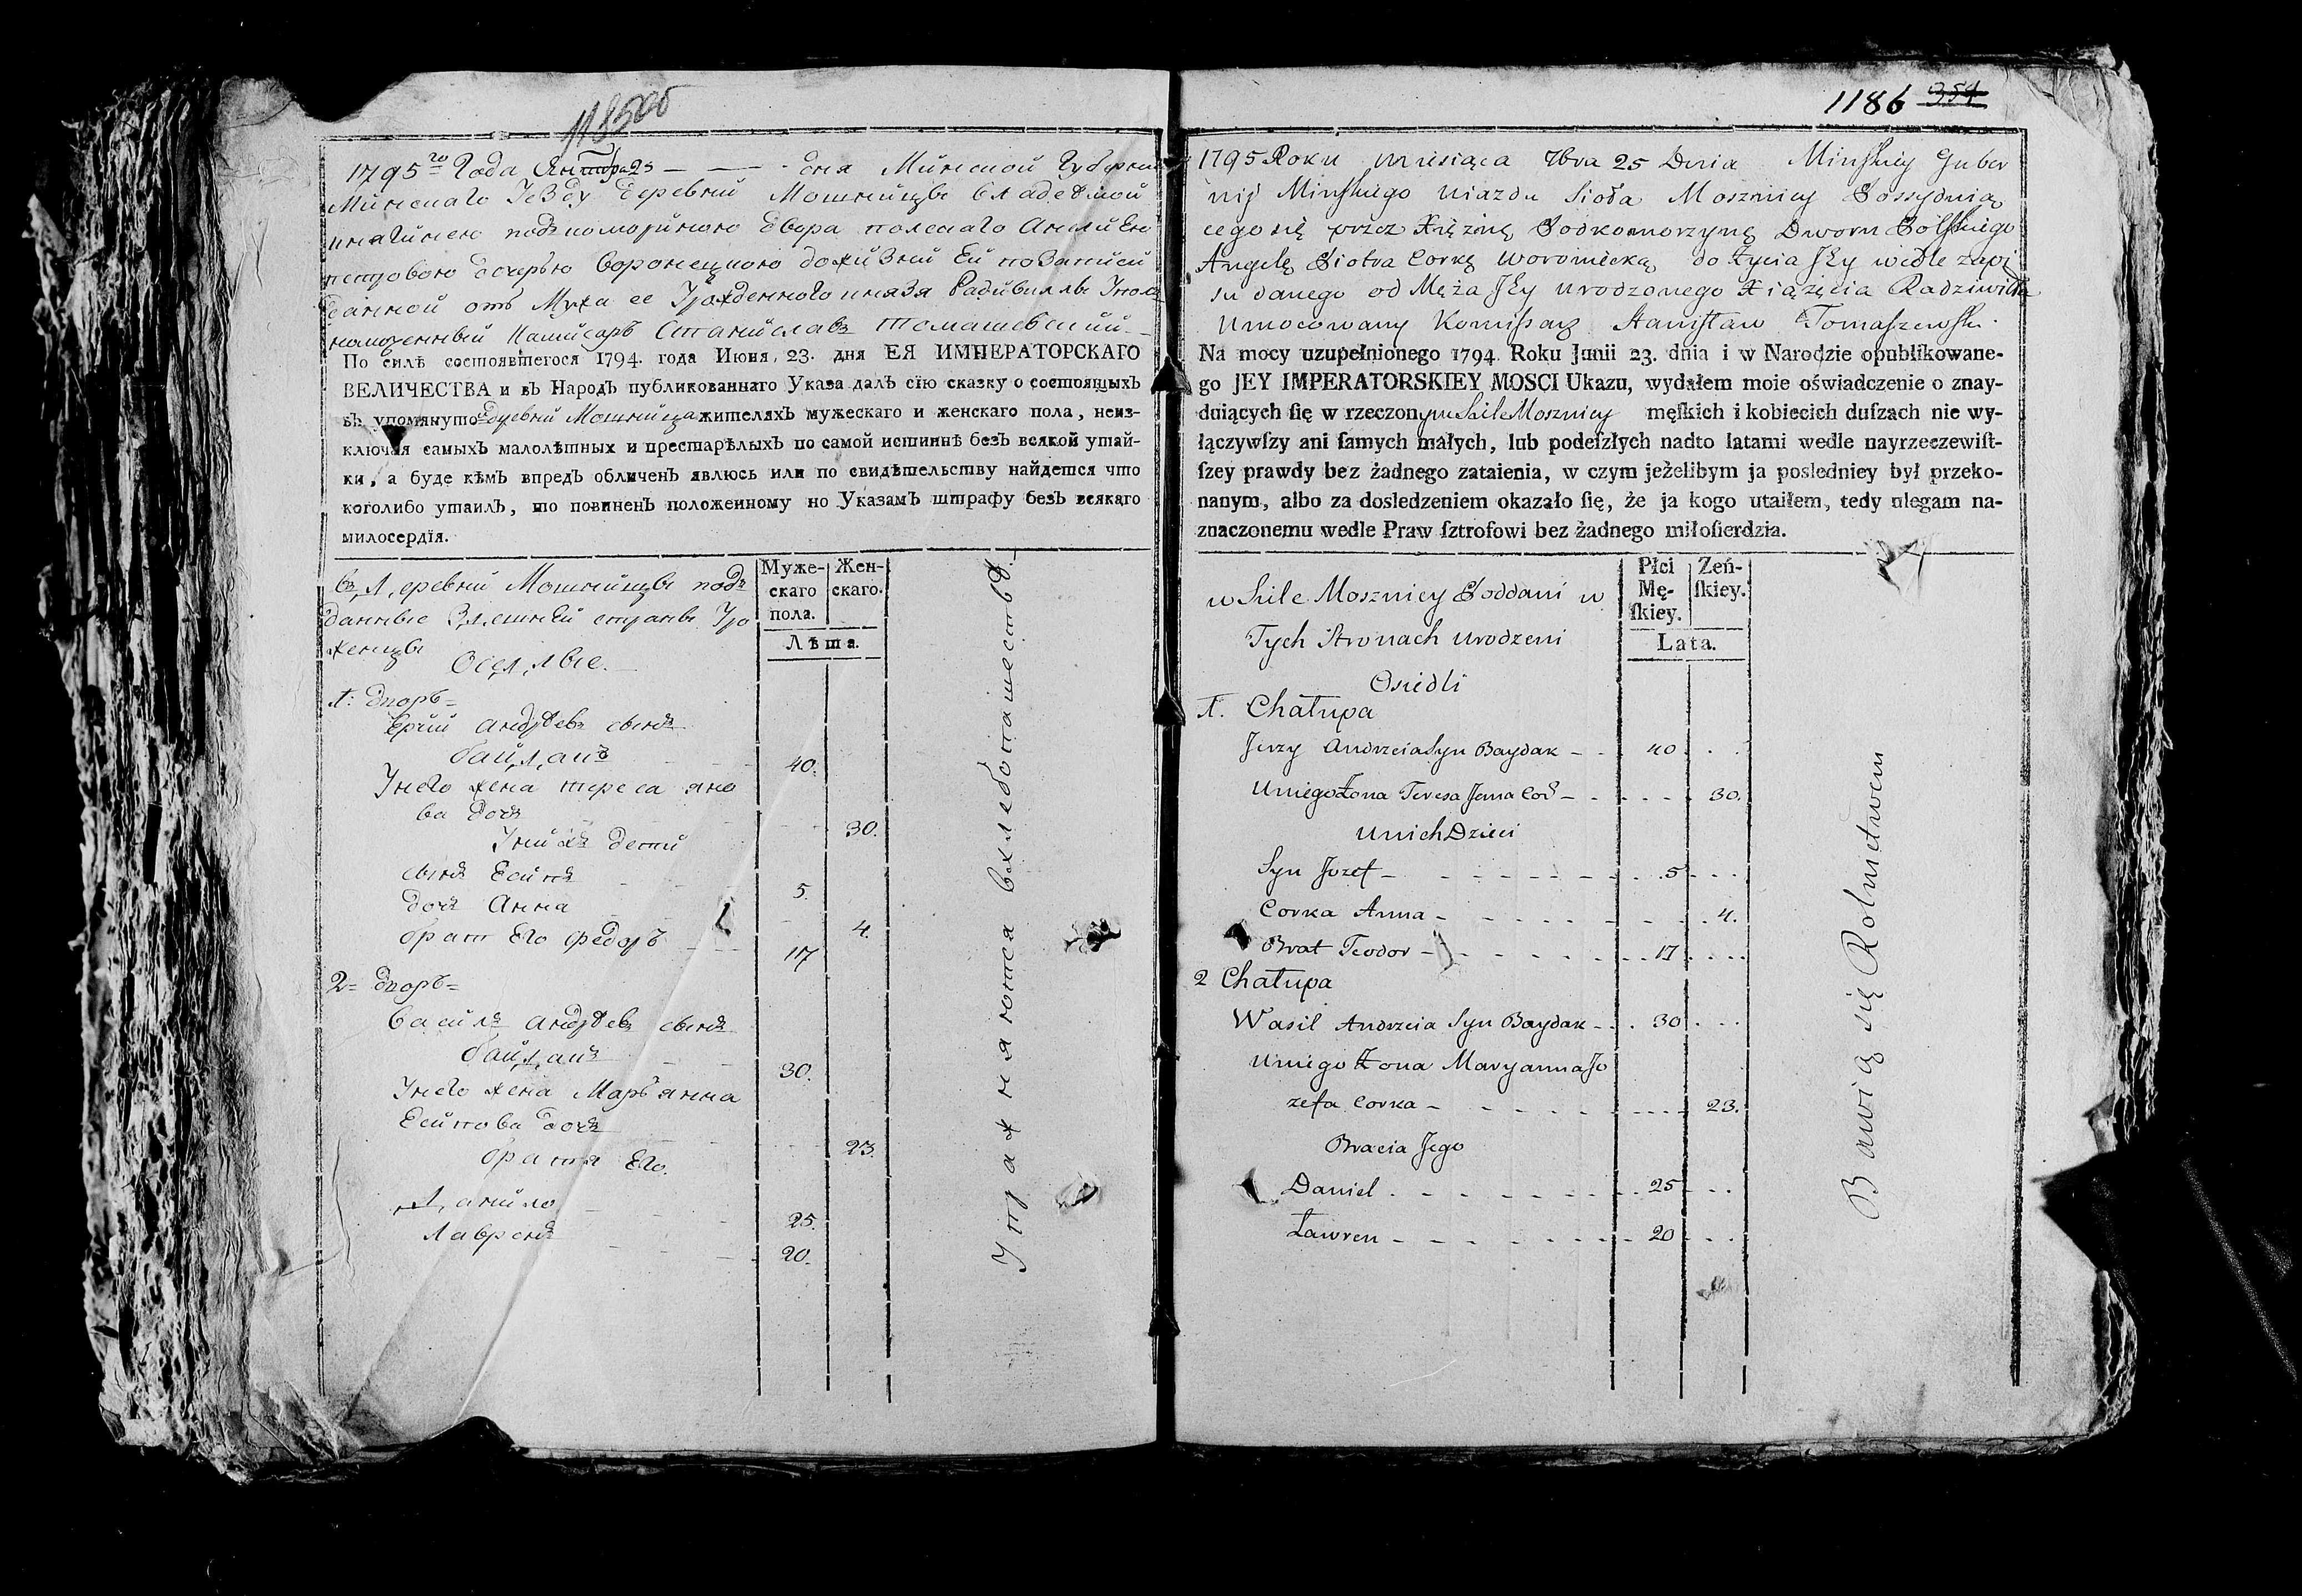 1795го Года Сентября 25 — — дня Минской Губернии
Минскаго Уезду Деревни Мошницы владеемой
княгинею подкомориною Двора полскаго Анелиею
петровою дочерью Воронецкою дожизни Ей по записи
данной отъ Мужа ее Урожденного князя Радивилла Упол
номоченный Камисаръ Станиславъ Томашевский
По силѣ состоявшегося 1794. года Июня, 23. дня ЕЯ ИМПЕРАТОРСКАГО
ВЕЛИЧЕСТВА и въ Народъ публикованнаго Указа далъ сїю сказку о состоящыхъ
въ упомянутой Деревни Мошница жителяхъ мужескаго и женскаго пола, неиз-
ключая самыхъ малолѣтныхъ и престарѣлыхъ по самой истиннѣ безъ всякой утай-
ки, а буде кѣмъ впредь обличенъ явлюсь или по свидѣтельству найдется что
коголибо утаилъ, то повиненъ положенному по Указамъ штрафу безъ всякаго
милосердїя.
Муже-
скаго
пола.
Жен-
скаго.
Лѣта.
въ Деревни Мошницы под
данные Здешней страны Уро
женцы
Оседлые.
1: Дворъ
Юрий андреевъ сынъ
байдакъ 40.
Унего жена тереса яно
ва дочь 30.
Унихъ дети
сынъ Есипъ 5.
дочь Анна 4.
братъ Его Федоръ 17
2= Дворъ=
Василь андреевъ сынъ
байдакъ 30.
Унего жена Марьянна
Есипова дочь 23.
братья Его.
Данило 25.
Лавренъ 20.
Упражняются въхлебопашествѣ.
1186 354
1795 Roku miesiąca 7bra 25 Dnia Minskiey Guber
nij Minskiego Uiazdu Sioła Mosznicy Possyduią
cego się przez Xiężnę Podkomorzynę Dworu Polskiego
Angelę Piotra Corkę Woroniecką do Życia JEy wedle zapi
su danego od Męża JEy urodzonego Xiążęcia Radziwiłła
Umocowany Komissarz Stanisław Tomaszewski
Na mocy uzupełnionego 1794 Roku Junii 23. dnia i w Narodzie opublikowane-
go JEY IMPERATORSKIEY MOSCI Ukazu, wydałem moie oświadczenie o znay-
duiących ſię w rzeczonym Siele Mosznicy męſkich i kobiecich duſzach nie wy-
łączywſzy ani ſamych małych, lub podeſzłych nadto latami wedle nayrzeczewiſt-
ſzey prawdy bez żadnego zataienia, w czym jeżelibym ja posledniey był przeko-
nanym, albo za dosledzeniem okazało ſię, że ja kogo utaiłem, tedy ulegam na-
znaczonemu wedle Praw ſztrofowi bez żadnego miłoſierdzia.
Płci
Mę-
ſkiey.
Zeń-
ſkiey.
Lata.
w Siele Mosznicy Poddani w
Tych Stronach urodzeni
Osiedli
1. Chałupa
Jerzy Andrzeia Syn Baydak 40
Uniego Żona Teresa Jana Cor 30.
Unich Dzieci
Syn Jozef 5
Corka Anna 4.
Brat Teodor 17
2 Chałupa
Wasil Andrzeia Syn Baydak 30
Uniego Żona Maryanna Jo
zefa Corka 23.
Bracia Jego
Daniel 25
Ławren 20
Bawią się Rolnictwem